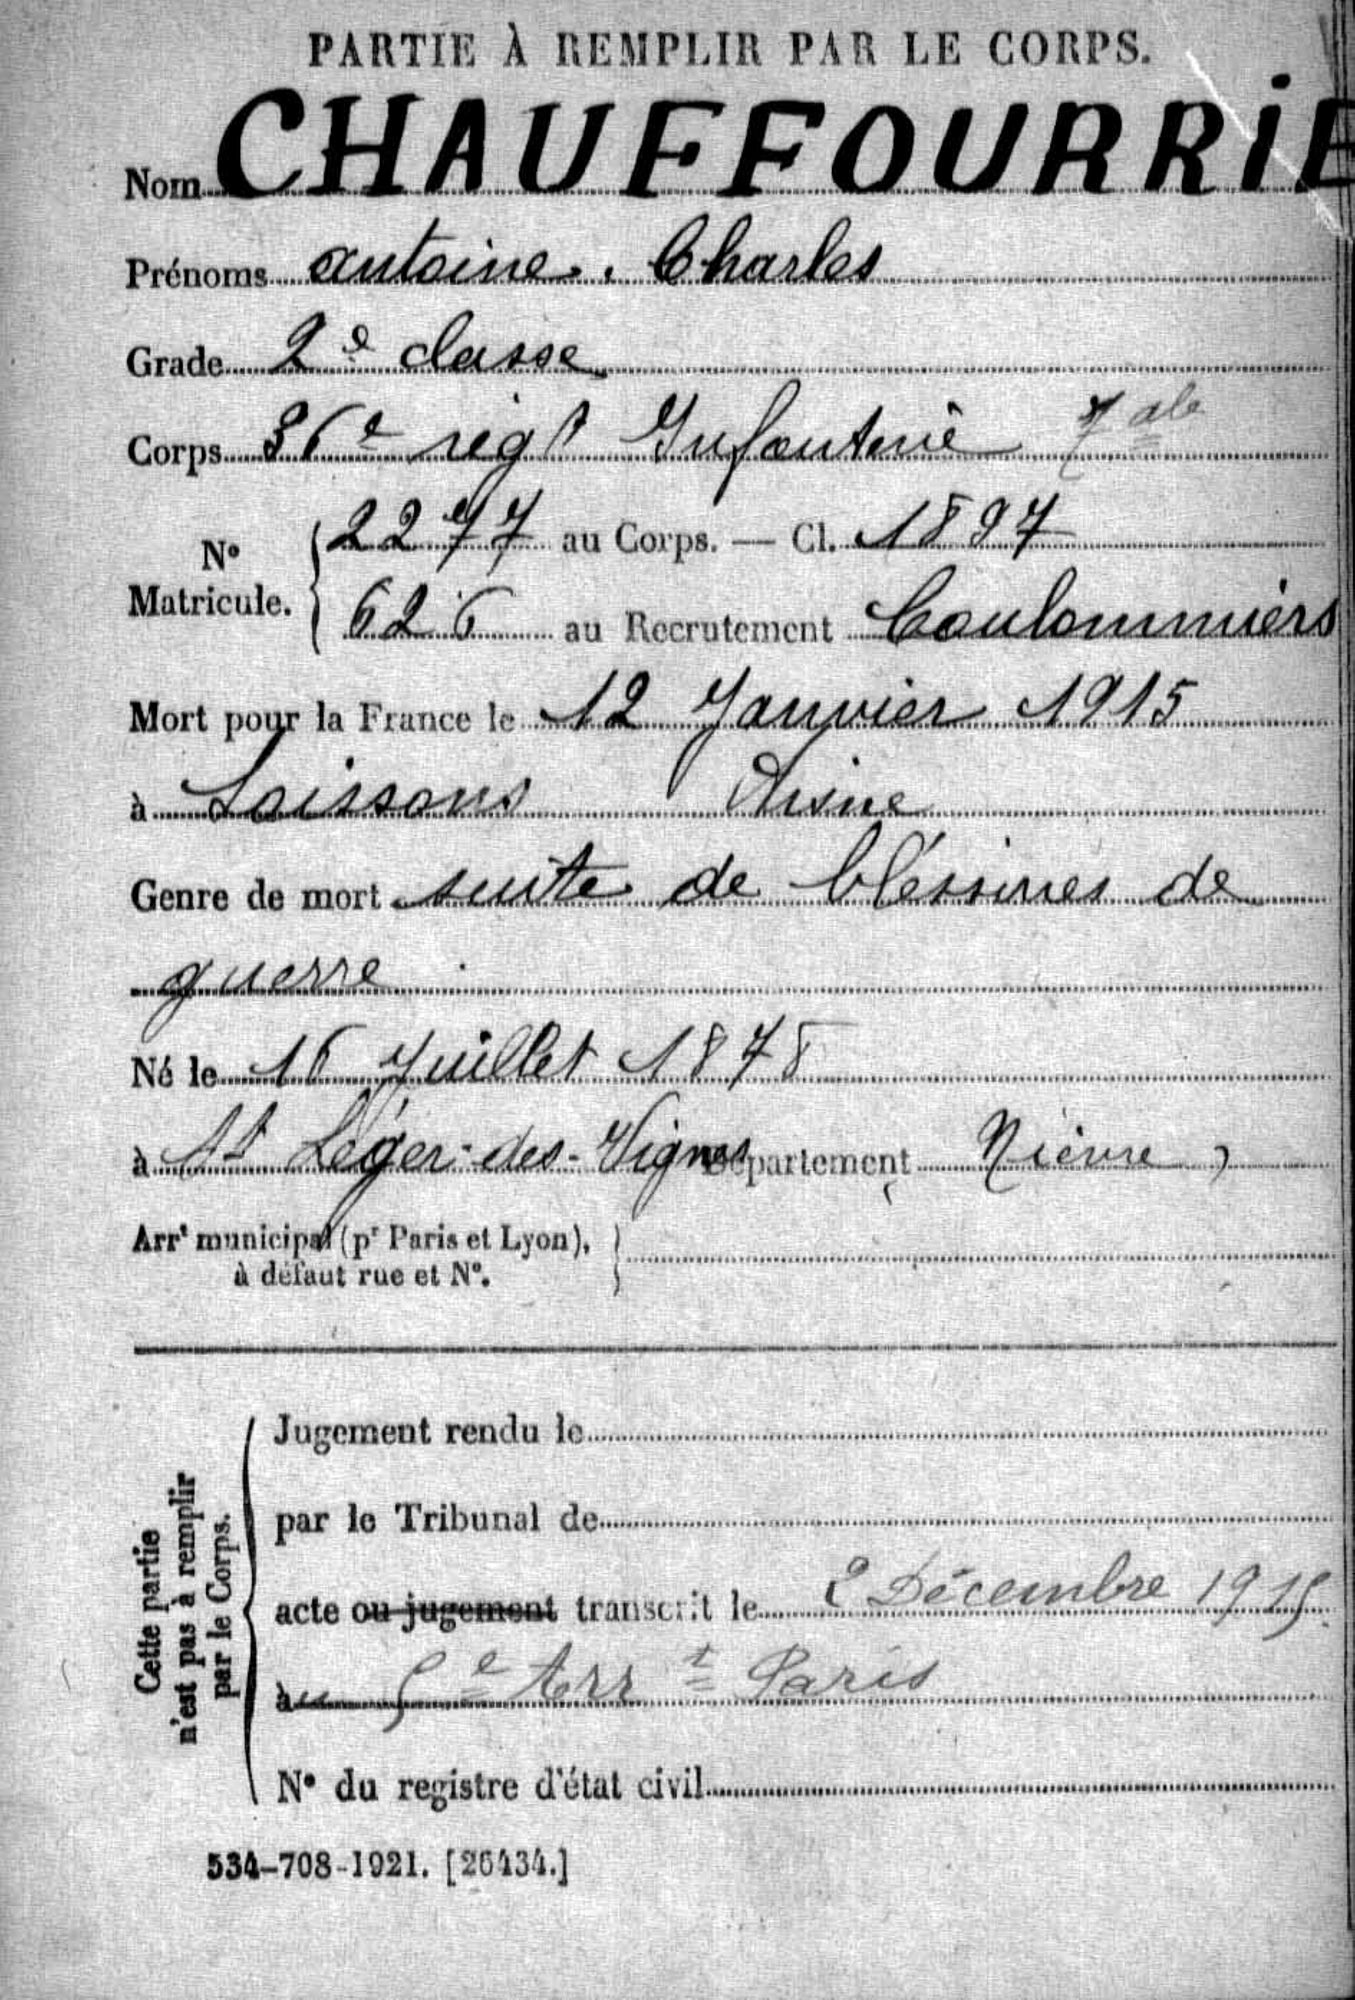 PARTIE À REMPLIR PAR LE CORPS.
Nom CHAUFFOURRIE
Prénoms Antoine. Charles
Grade 2e classe
Corps 36e régt Infanterie
No Matricule. 2277 au Corps. — Cl. 1897
626 au Recrutement Coulommiers
Mort pour la France le 12 Janvier 1915
à Soissons Aisne
Genre de mort suite de bléssures de
guerre
Né le 16 Juillet 1878
à St Léger-des-Vignes Département Nièvre
Arrt municipal (pr Paris et Lyon),
à défaut rue et No.
Cette partie
n'est pas à remplir
par le Corps.
Jugement rendu le
par le Tribunal de
acte ou jugement transcrit le 2 Décembre 1915.
au 5e Arrt Paris
No du registre d'état civil
534-708-1921. [26434.]